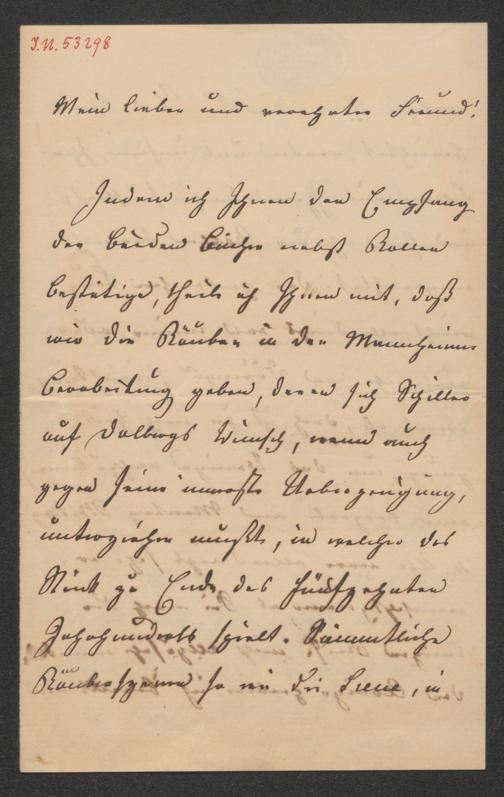 I.N. 53298
Mein lieber und verehrter Freund!
Indem ich Ihnen den Empfang
der beiden Bücher nebst Rollen
bestätige, theile ich Ihnen mit, daß
wir die Räuber in der Mannheimer
Bearbeitung geben, deren sich Schiller
auf Dalbergs Wunsch, wenn auch
gegen seine innerste Ueberzeugung,
unterziehen mußte, in welcher das
Stück zu Ende des fünfzehnten
Jahrhunderts spielt. Sämmtliche
Räuberszenen so wie die, in